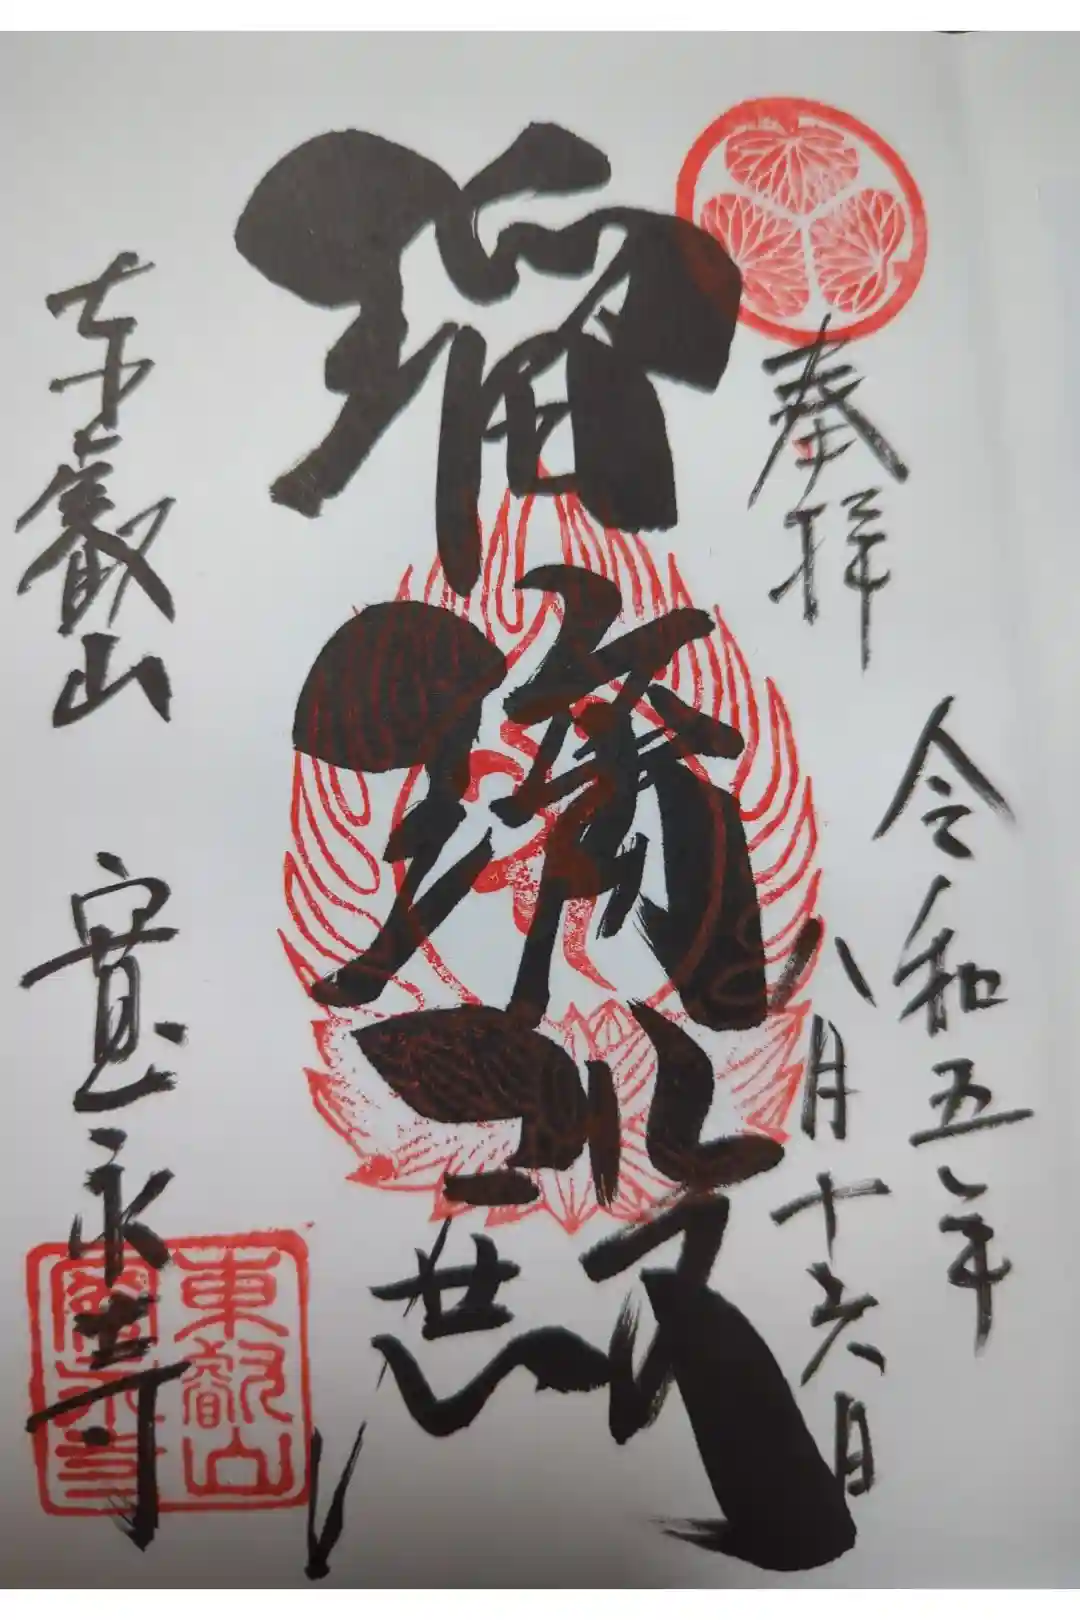 奉拝
令和五年
八月十六日
瑠璃殿
東叡山 寛永寺
東叡山
寛永寺